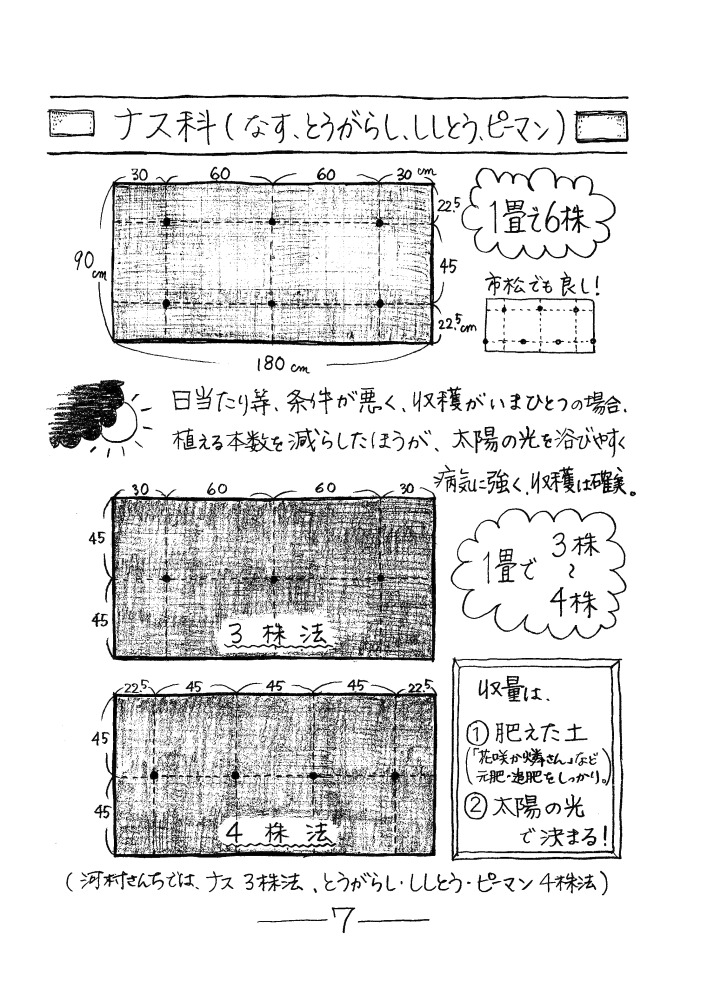 ナス科(なす、とうがらし、ししとう、ピーマン)
30 60 60 30cm
22.5
45
22.5cm
90cm
180cm
1畳で6株
市松でも良し!
日当たり等、条件が悪く、収穫がいまひとつの場合、
植える本数を減らしたほうが、太陽の光を浴びやすく
病気に強く、収穫は確実。
30 60 60 30
45
45
3株法
1畳で3株~4株
22.5 45 45 45 22.5
45
45
4株法
収量は、
①肥えた土
(「花咲か燐さん」など
元肥・追肥をしっかり。)
②太陽の光
で決まる!
(河村さんちでは、ナス3株法、とうがらし・ししとう・ピーマン4株法)
7